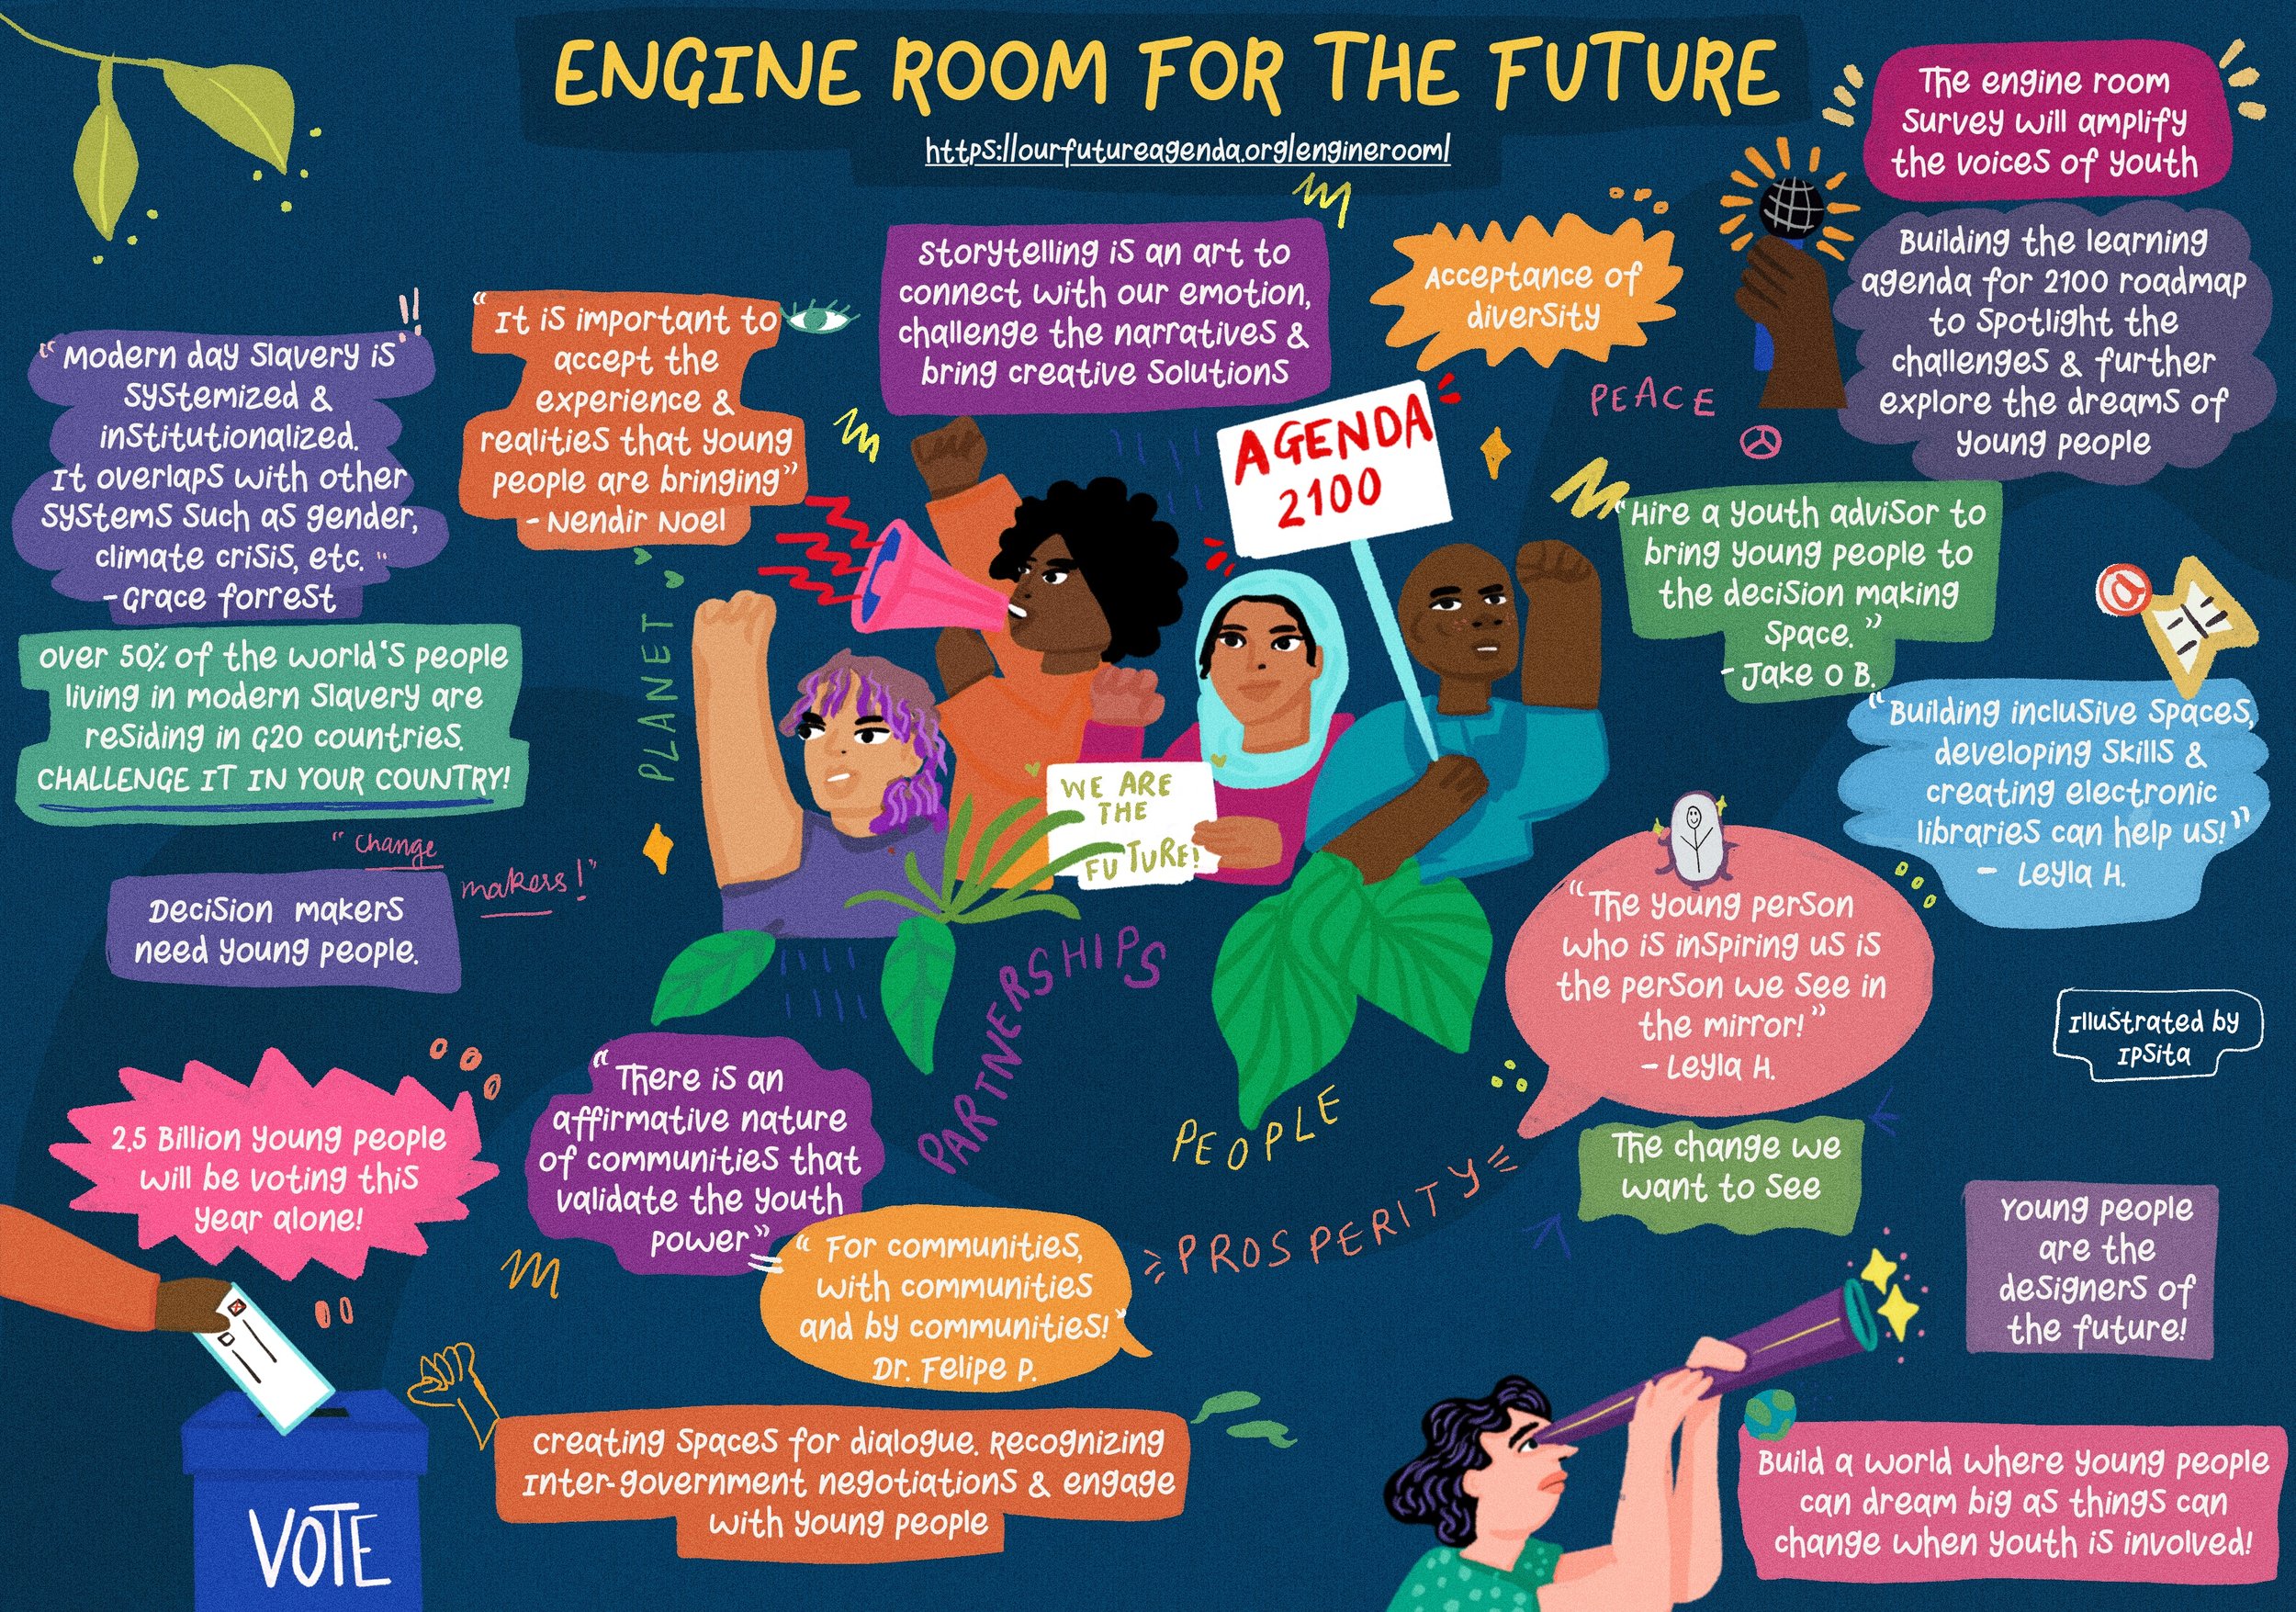 ENGINE ROOM FOR THE FUTURE
https://ourfutureagenda.org/engineroom/
The engine room
survey will amplify
the voices of youth
Building the learning
agenda for 2100 roadmap
to spotlight the
challenges & further
explore the dreams of
young people
storytelling is an art to
connect with our emotion,
challenge the narratives &
bring creative solutions
Acceptance of
diversity
PEACE
"It is important to
accept the
experience &
realities that young
people are bringing"
- Nendir Noel
"Modern day slavery is
systemized &
institutionalized.
It overlaps with other
systems such as gender,
climate crisis, etc. "
- Grace forrest
over 50% of the world's people
living in modern slavery are
residing in G20 countries.
CHALLENGE IT IN YOUR COUNTRY!
"change
makers!"
Decision makers
need young people.
PLANET
AGENDA
2100
WE ARE
THE
FUTURE!
"Hire a youth advisor to
bring young people to
the decision making
space. "
- Jake O B.
"Building inclusive spaces,
developing skills &
creating electronic
libraries can help us!"
- Leyla H.
"The young person
who is inspiring us is
the person we see in
the mirror!"
- Leyla H.
Illustrated by
Ipsita
PARTNERSHIPS
PEOPLE
PROSPERITY
The change we
want to see
Young people
are the
designers of
the future!
2.5 Billion young people
will be voting this
year alone!
"There is an
affirmative nature
of communities that
validate the youth
power"
"For communities,
with communities
and by communities!"
Dr. Felipe P.
creating spaces for dialogue. Recognizing
Inter-government negotiations & engage
with young people
VOTE
Build a world where young people
can dream big as things can
change when youth is involved!